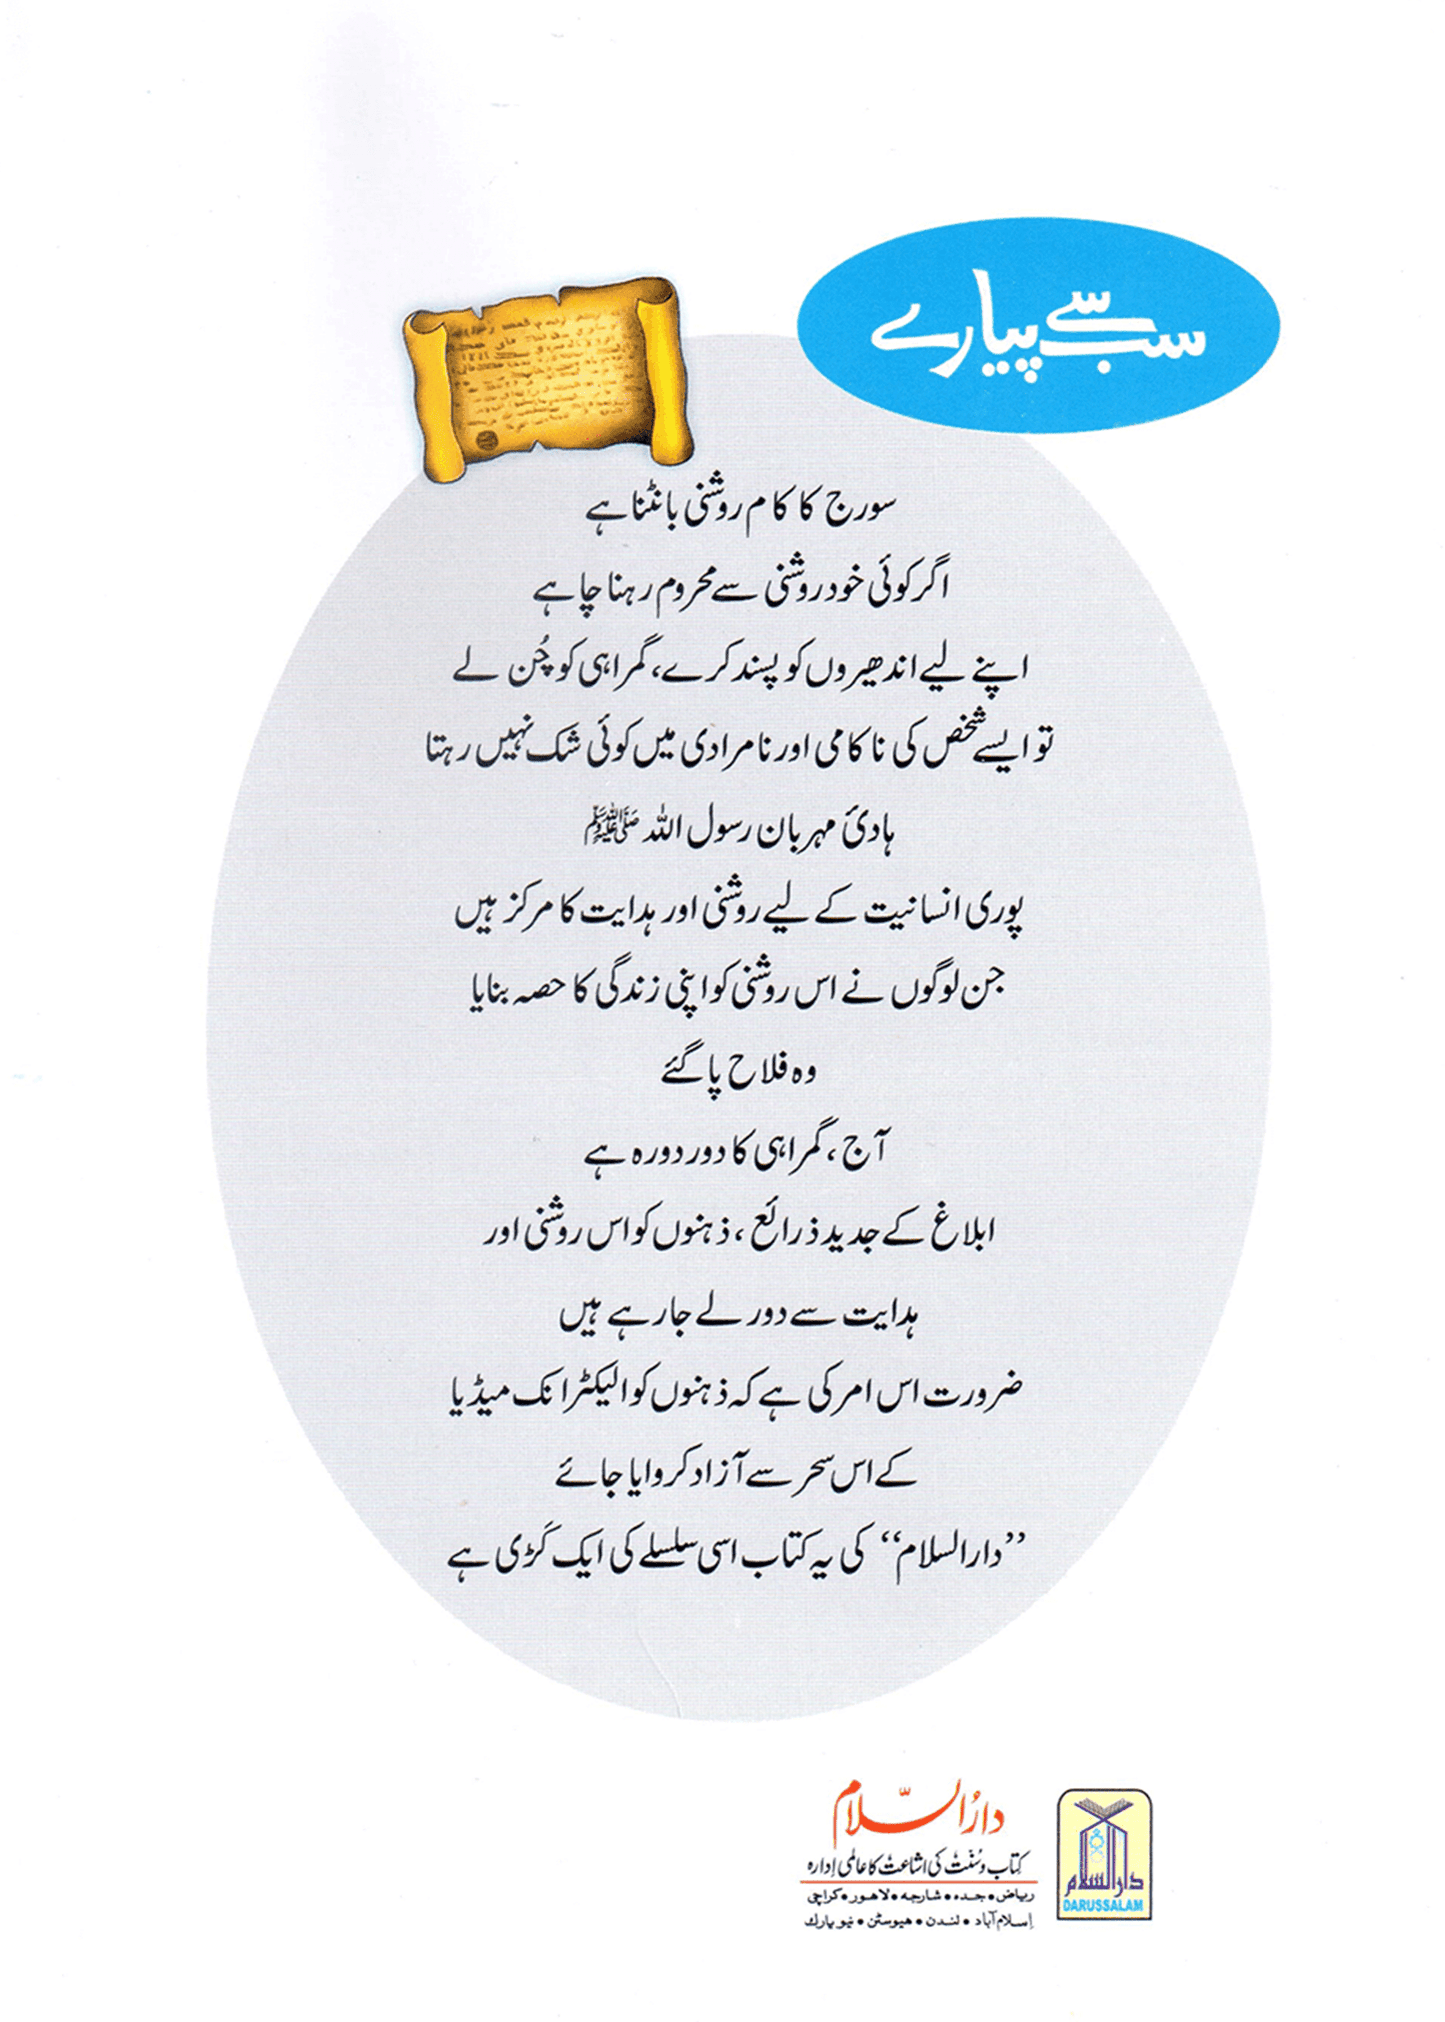 سب سے پیارے
سورج کا کام روشنی بانٹنا ہے
اگر کوئی خود روشنی سے محروم رہنا چاہے
اپنے لیے اندھیروں کو پسند کرے، گمراہی کو چُن لے
تو ایسے شخص کی ناکامی اور نامرادی میں کوئی شک نہیں رہتا
ہادئ مہربان رسول اللہ ﷺ
پوری انسانیت کے لیے روشنی اور ہدایت کا مرکز ہیں
جن لوگوں نے اس روشنی کو اپنی زندگی کا حصہ بنایا
وہ فلاح پا گئے
آج، گمراہی کا دور دورہ ہے
ابلاغ کے جدید ذرائع، ذہنوں کو اس روشنی اور
ہدایت سے دور لے جا رہے ہیں
ضرورت اس امر کی ہے کہ ذہنوں کو الیکٹرانک میڈیا
کے اس سحر سے آزاد کروایا جائے
”دارالسلام“ کی یہ کتاب اسی سلسلے کی ایک کَڑی ہے
دارُالسّلام
کتاب و سُنّت کی اشاعت کا عالمی اِدارہ
ریاض • جدہ • شارجہ • لاہور • کراچی
اِسلام آباد • لندن • ہیوسٹن • نیو یارک
دارالسلام
DARUSSALAM